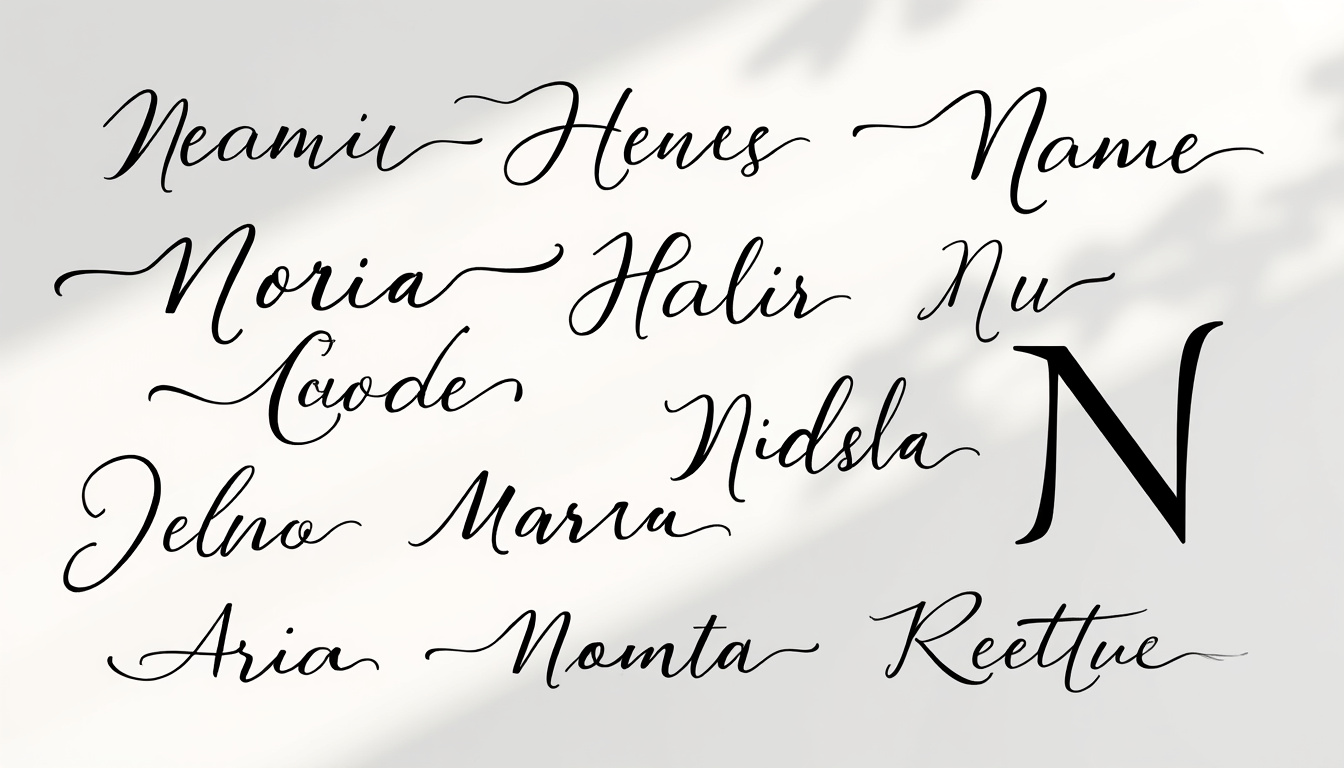 Neamil Henes Name
Noria Halir Nu
Caode
Nidsla N
Jelno Marra
Aria Nomta Reettue